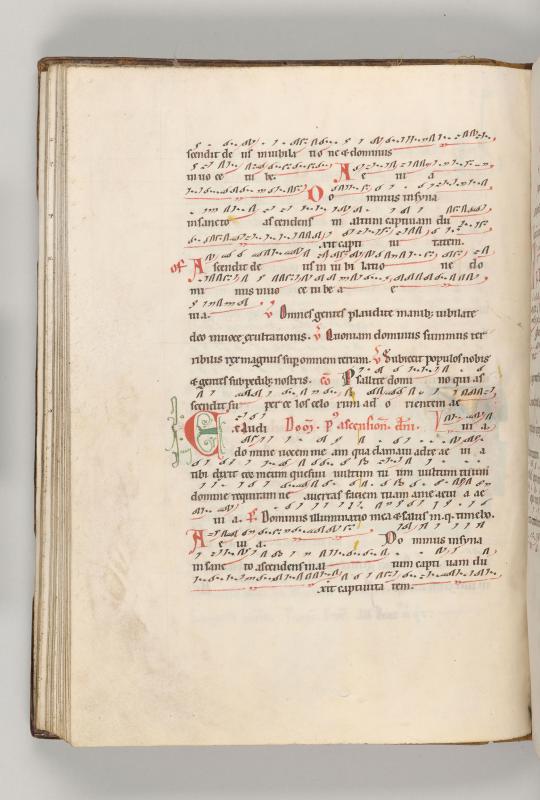 scendit de us in iubila tio ne & dominus
in uo ce tu be. A e ui a
Do minus insyna
insancto ascendens in altum captiuam du
xit capti ui tatem.
of Ascendit de us in iu bi latio ne & do
mi nus inuo ce tu be a e
uia. v Omnes gentes plaudite manib; iubilate
deo inuoce exultationis. v Quoniam dominus summus ter
ribilis rex magnus sup omnem terram. v Subiecit populos nobis
& gentes sub pedib; nostris. co Psallite domi no qui as
scendit sup per ce los celo rum ad o rientem ae
Exaudi Dom. p ascension. dni. uia
do mine uocem me am qua clamaui ad te ae uia
tibi dixit cor meum quesiui uultum tu um uultum tuum
domine requiram ne auertas faciem tuam a me aeui a ae
ui a. ps Dominus illuminatio mea & salus m. q. timebo.
A e uia. Do minus insyna
in sanc to ascendens in al tum capti uam du
xit captiuita tem.